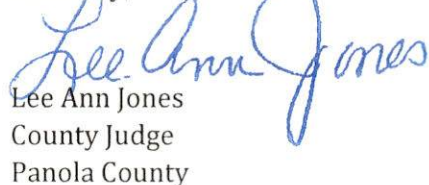 Lee Ann Jones
Lee Ann Jones
County Judge
Panola County